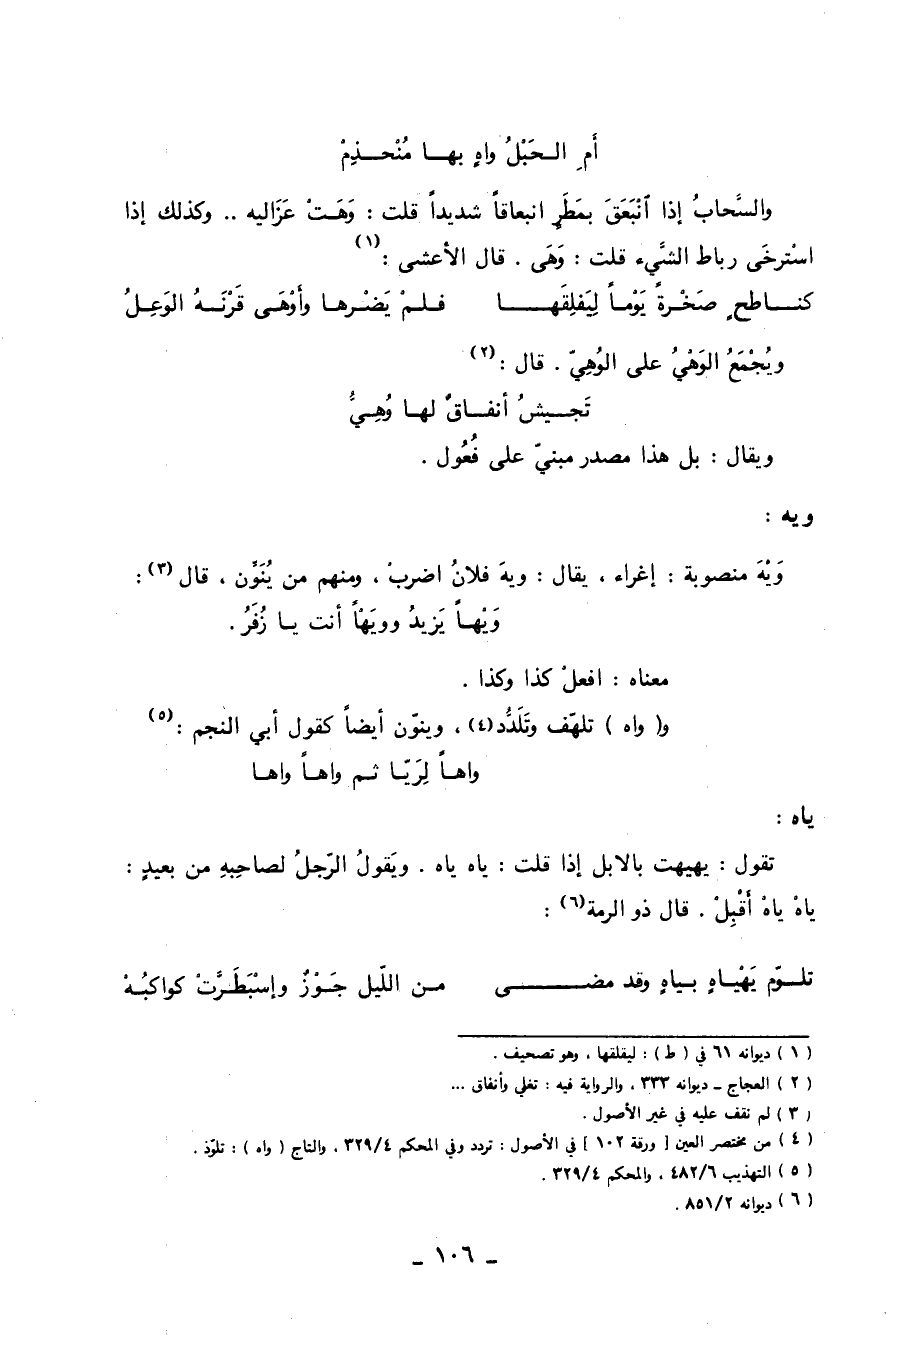 أَمِ الـحَبْلُ واهٍ بهـا مُنْحـذِمْ
والسَّحابُ إذا ٱنْبَعَقَ بمَطَرٍ انبعاقاً شديداً قلت : وَهَتْ عَزَاليه .. وكذلك إذا
اسْترخَى رباط الشَّيء قلت : وَهَى . قال الأعشى :(١)
كنـاطحٍ صَخْـرةً يَوْمـاً لِيَفلِقَهـا فلـمْ يَضْـرها وأَوْهَـى قَرْنَـهُ الوَعِلُ
ويُجْمَعُ الوَهْيُ على الوُهِيّ . قال :(٢)
تَجـيشُ أنفـاقٌ لهـا وُهِـيُّ
ويقال : بل هذا مصدر مبنيّ على فُعُول .
ويه :
وَيْهَ منصوبة : إغراء ، يقال : ويهَ فلانُ اضربْ ، ومنهم من يُنَوِّن ، قال(٣) :
وَيْهـاً يَزيدُ وويَهْاً أنت يـا زُفَرُ .
معناه : افعلْ كذا وكذا .
و( واه ) تلهّف وتَلَدُّد(٤) ، وينوّن أيضاً كقول أبي النجم :(٥)
واهـاً لِرَيّـا ثـم واهـاً واهـا
ياه :
تقول : يهيهت بالابل إذا قلت : ياه ياه . ويَقولُ الرّجلُ لصاحِبهِ من بعيدٍ :
ياهْ ياهْ أَقْبِلْ . قال ذو الرمة(٦) :
تلـوّم يَهْيـاهٍ بـياهٍ وقد مضـى مـن اللّيل جَـوْزٌ وإسْبَطَـرَّتْ كواكبُـهْ
( ١ ) ديوانه ٦١ في ( ط ) : ليقلقها ، وهو تصحيف .
( ٢ ) العجاج ـ ديوانه ٣٣٣ ، والرواية فيه : تغلي وأنفاق ...
( ٣ ) لم نقف عليه في غير الأصول .
( ٤ ) من مختصر العين [ ورقة ١٠٢ ] في الأصول : تردد وفي المحكم ٣٢٩/٤ ، والتاج ( واه ) : تلوّذ .
( ٥ ) التهذيب ٤٨٢/٦ ، والمحكم ٣٢٩/٤ .
( ٦ ) ديوانه ٨٥١/٢ .
ـ ١٠٦ ـ